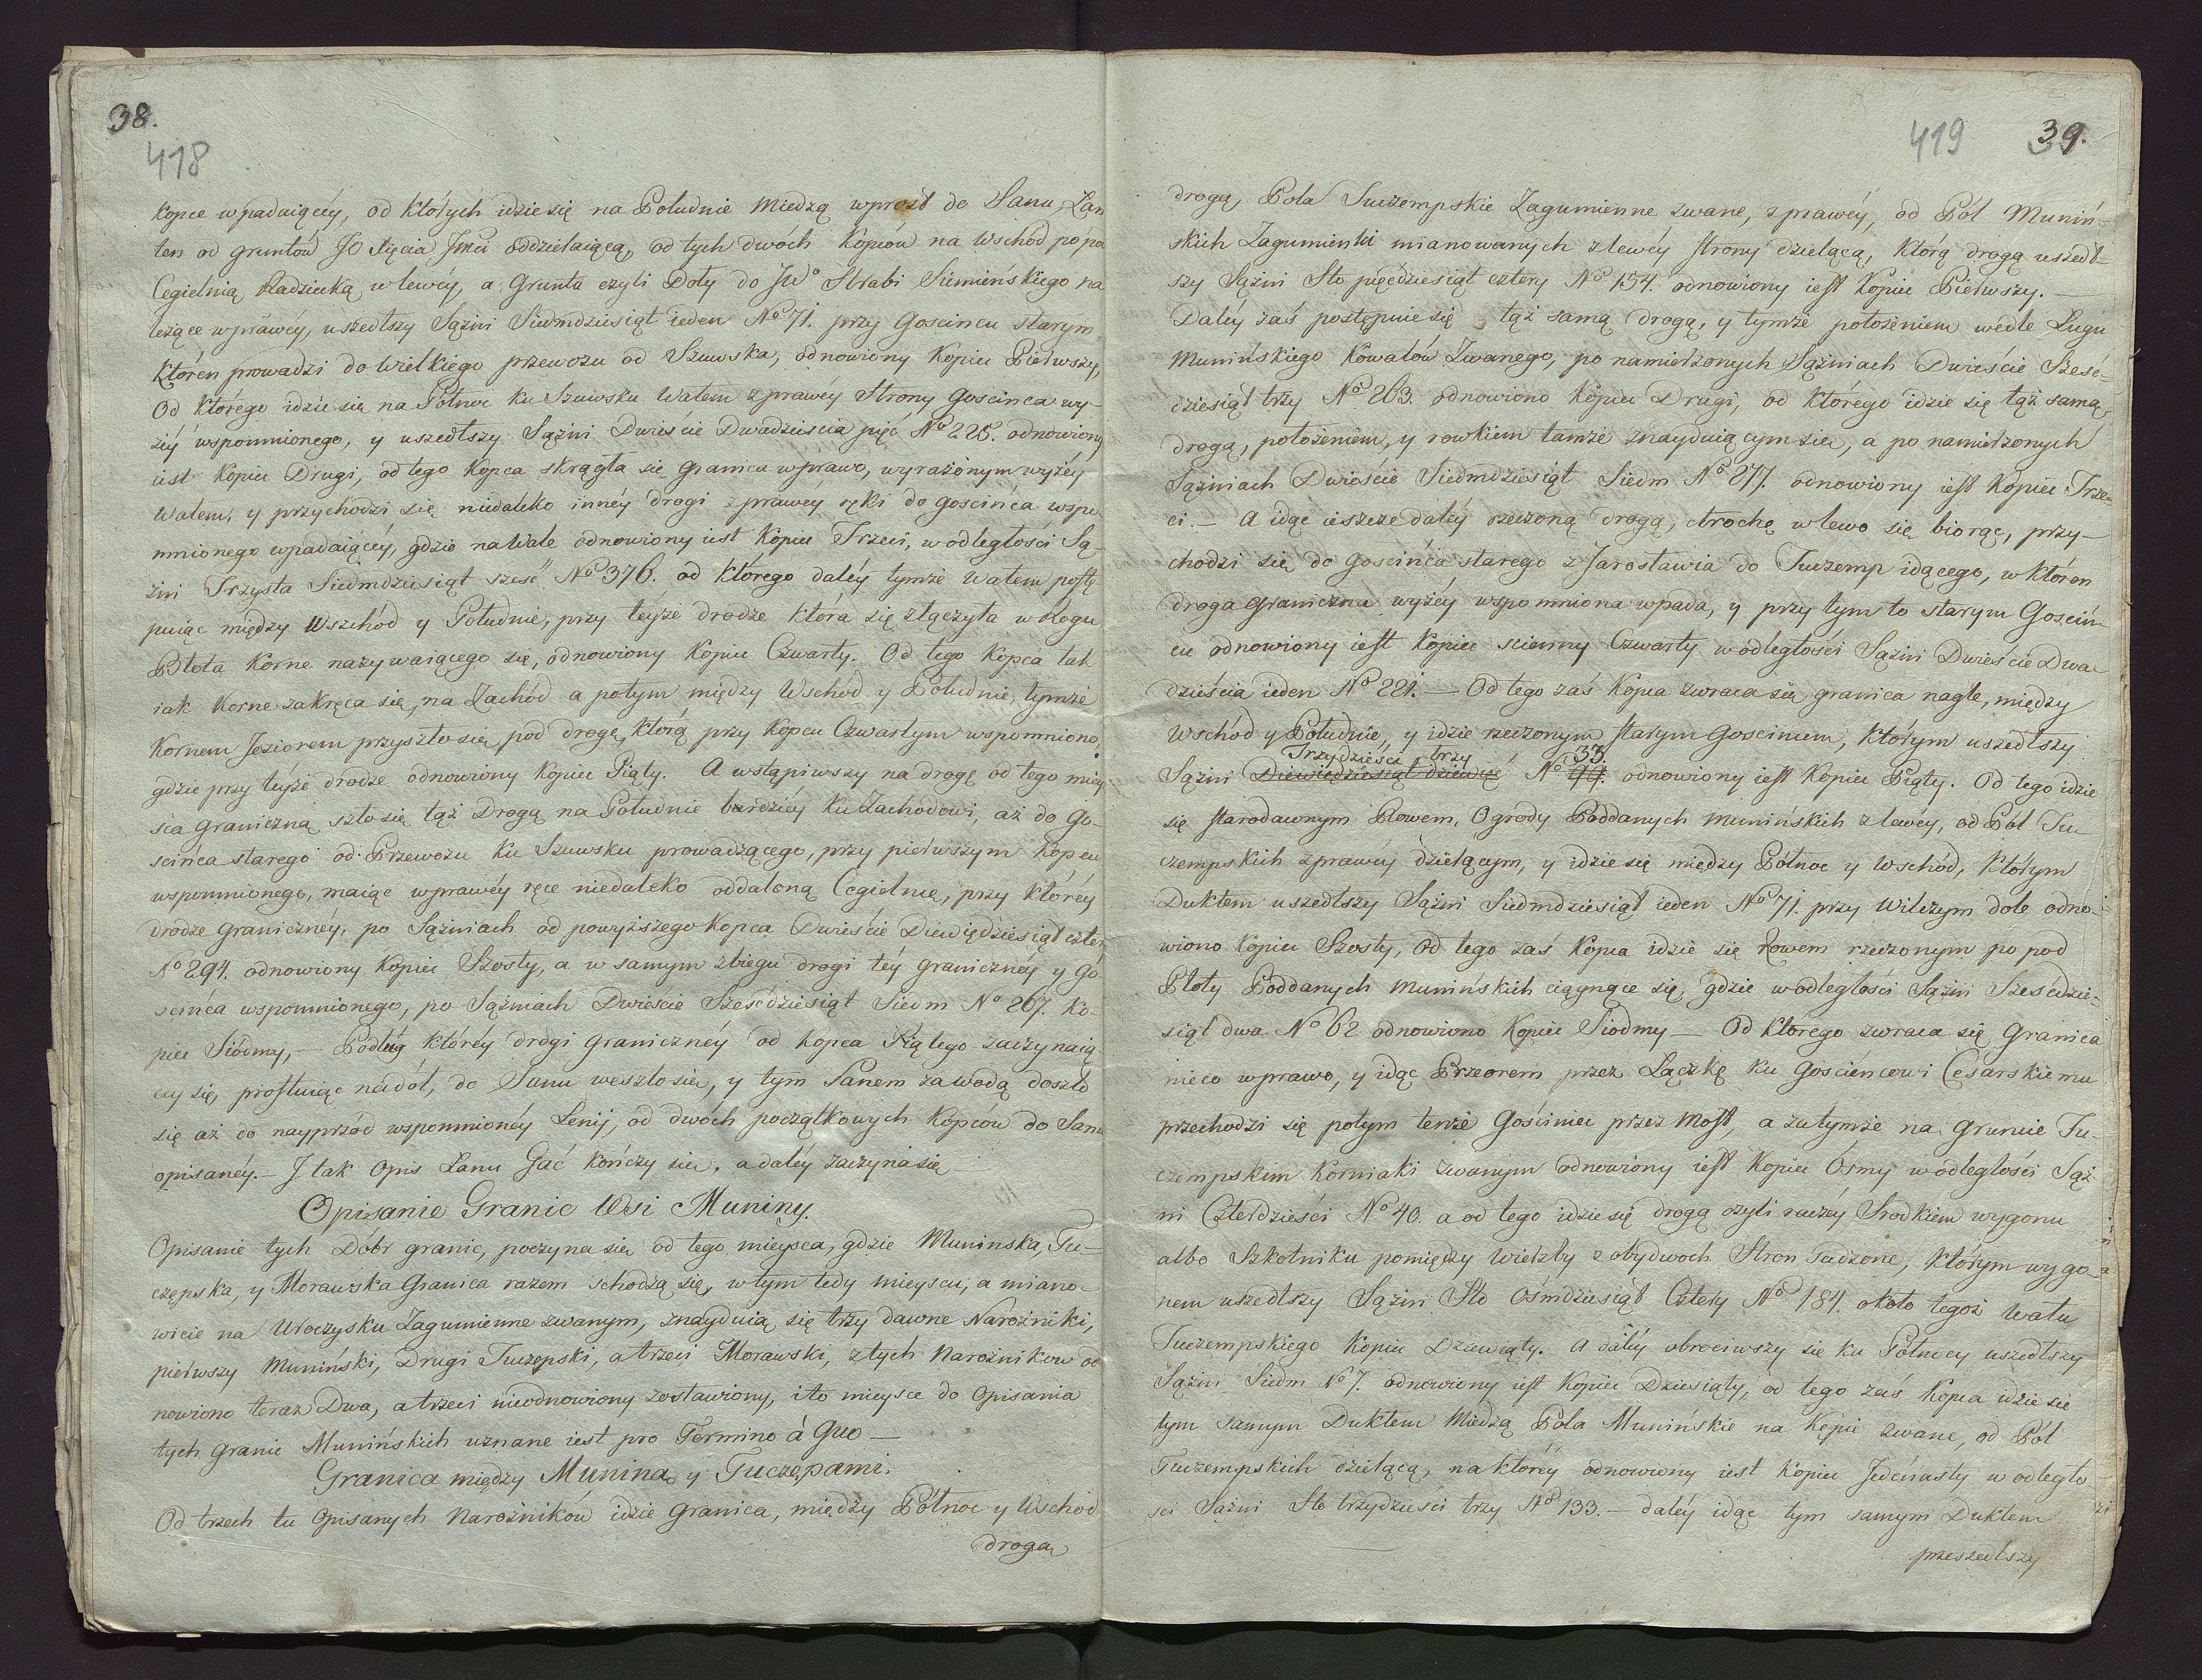 38.
418
kopce wpadaiącéy, od których idzie się na Południe Miedzą wprost do Sanu, Łan
ten od gruntów JO Xięcia Jmci oddzielaiącą, od tych dwóch Kopców na Wschód po pod
Cegielnią Radziecką w lewéy, a Grunta czyli Doły do JW° Hrabi Siemieńskiego na
leżące w prawéy, uszedłszy Sążni Siedmdziesiąt ieden N° 71. przy Goscincu starym
któren prowadzi do wielkiego przewozu od Szuwska, odnowiony Kopiec Pierwszy,
Od którego idzie się na Północ ku Szuwsku Wałem z prawéy Strony Goscinca wy-
żéy wspomnionego, y uszedłszy Sążni Dwieście Dwadzieścia pięć N° 225. odnowiony
iest Kopiec Drugi, od tego Kopca skrągła się Granica w prawo, wyrażonym wyżéy
Wałem, y przychodzi się niedaleko innéy drogi z prawéy ręki do goscińca wspo
mnionego wpadaiącéy, gdzie na Wale odnowiony iest Kopiec Trzeci, w odległości Są-
żni Trzysta Siedmdziesiąt sześć N° 376. od którego daléy tymże Wałem postę
puiąc między Wschód y Południe, przy teyże drodze która się złączyła w Rogu
Błota Korne nazywaiącego się, odnowiony Kopiec Czwarty. Od tego Kopca tak
iak Korne zakręca się, na Zachód a potym między Wschód y Południe, tymże
Kornem Jeziorem przyszło się, pod drogę, którą przy Kopcu Czwartym wspomniono,
gdzie przy teyże drodze odnowiony Kopiec Piąty. A wstąpiwszy na drogę od tego miey
sca graniczną szło się tąż Drogą na Południe bardziéy ku Zachodowi, aż do Go-
scińca starego od Przewozu ku Szuwsku prowadzącego, przy pierwszym Kopcu
wspomnionego, maiąc w prawéy ręce niedaleko oddaloną Cegielnię, przy któréy
drodze Granicznéy, po Sążniach od powyższego Kopca Dwieście Dziewiędziesiąt czter
N° 294. odnowiony Kopiec Szosty, a w samym zbiegu drogi téy granicznéy y Go
scińca wspomnionego, po Sążniach Dwieście Sześćdziesiąt Siedm N° 267. Ko-
piec Siódmy, — Podług któréy drogi Granicznéy od Kopca Piątego zaczynaią
cey się, prostuiąc na dół, do Sanu weszło się, y tym Sanem za wodą doszło
się aż do nayprzód wspomnionéy Lenij, od dwóch początkowych Kopców do Sanu
opisanéy. — J tak Opis Łanu Gać kończy się, a daléy zaczyna się
Opisanie Granic Wsi Muniny.
Opisanie tych Dóbr granic, poczyna się od tego mieysca, gdzie Muninska, Tu-
czępska, y Morawska Granica razem schodzą się, w tym tedy mieyscu, a miano-
wicie na Uroczysku Zagumienne zwanym, znayduią się trzy dawne Narożniki,
pierwszy Muniński, Drugi Tuczępski, a trzeci Morawski, z tych Narożnikow od
nowiono teraz Dwa, a trzeci nieodnowiony zostawiony, i to mieysce do Opisania
tych Granic Munińskich uznane iest pro Termino à Quo —
Granica między Muniną y Tuczępami.
Od trzech tu Opisanych Narożników idzie Granica, między Północ y Wschod
drogą
419 39.
drogą, Pola Tuczempskie Zagumienne zwane, z prawéy, od Pól Muniń-
skich Zagumienki mianowanych z lewéy strony dzielącą, którą drogą uszedł-
szy Sążni Sto pięćdziesiąt cztery N° 154. odnowiony iest Kopiec Pierwszy. —
Daléy zaś postępuie się tąż samą drogą, y tymże położeniem wedle Ługu
Munińskiego Kowalów Zwanego, po namierzonych Sążniach Dwieście Sześć-
dziesiąt trzy N° 263. odnowiono Kopiec Drugi, od którego idzie się tąż samą
drogą, położeniem, y rowkiem tamże znayduiącym się, a po namierzonych
Sążniach Dwieście Siedmdziesiąt Siedm N° 277. odnowiony iest Kopiec Trze-
ci. — A idąc ieszcze daléy rzeczoną drogą, trochę w lewo się biorąc, przy-
chodzi się do Goscińca starego z Jarosławia do Tuczemp idącego, w któren
droga Graniczna wyżéy wspomniona wpada, y przy tym to starym Gosciń-
cu odnowiony iest Kopiec scienny Czwarty w odległości Sążni Dwieście Dwa
dzieścia ieden N° 221. — Od tego zaś Kopca zwraca się granica nagle, między
Wschód y Południe, y idzie rzeczonym starym Goscincem, którym uszedłszy
Trzydzieści trzy 33.
Sążni Dziewiędziesiąt dziewięć N° 99. odnowiony iest Kopiec Piąty. Od tego idzie
się starodawnym Rowem, Ogrody Poddanych Munińskich z lewéy, od Pól Tu
czempskich z prawéy dzielącym, y idzie się między Północ y Wschód, którym
Duktem uszedłszy Sążni Siedmdziesiąt ieden N° 71. przy Wilczym dole odno-
wiono Kopiec Szosty, Od tego zaś Kopca idzie się Rowem rzeczonym po pod
Płoty Poddanych Munińskich ciągnące się, gdzie w odległości Sążni Sześćdzie-
siąt dwa N° 62 odnowiono Kopiec Siodmy — Od którego zwraca się Granica
nieco w prawo, y idąc Przeorem przez Łączkę ku Gościencowi Cesarskiemu
przechodzi się potym tenże Gościniec przez Most, a zatymże na Gruncie Tu-
czempskim Korniaki zwanym odnowiony iest Kopiec Ósmy w odległości Sąż-
ni Czterdzieści N° 40. a od tego idzie się drogą czyli raczéy Srodkiem wygonu
albo Szkotniku pomiędzy Wierzby z obydwoch Stron Sadzone, którym wygo-
nem uszedłszy Sążni Sto Ośmdziesiąt Cztery N° 184. około tegoż Wału
Tuczempskiego Kopiec Dziewiąty. A daléy obrociwszy się ku Północy uszedłszy
Sążni Siedm N° 7. odnowiony iest Kopiec Dziesiąty, od tego zaś Kopca idzie się
tym samym Duktem Miedzą Pola Munińskie na Kępie zwane, od Pól
Tuczempskich dzielącą, na któréy odnowiony iest Kopiec Jedenasty, w odległo-
sci Sążni Sto trzydzieści trzy N° 133. — daléy idąc tym samym Duktem
przeszedłszy